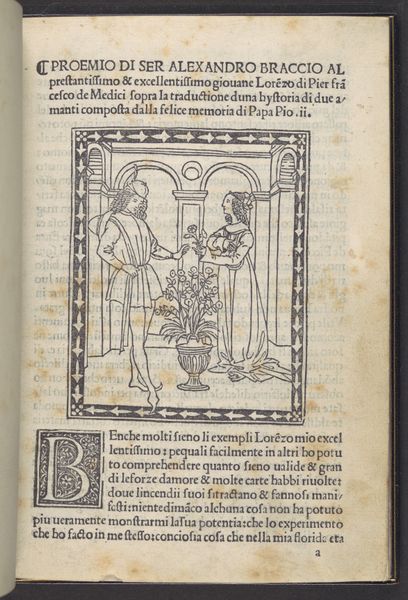 ¶PROEMIO DI SER ALEXANDRO BRACCIO AL
prestantissimo & excellentissimo giouane Lorẽzo di Pier frã
cesco de Medici sopra la traductione duna hystoria di due a⸗
manti composta dalla felice memoria di Papa Pio .ii.
BEnche molti sieno li exempli Lorẽzo mio excel
lentissimo: pequali facilmente in altri ho potu
to comprehendere quanto sieno ualide & gran
di leforze damore & molte carte habbi riuolte:
doue lincendii suoi sitractano & fannosi mani⸗
festi: niente dimãco alchuna cosa non ha potuto
piu ueramente monstrarmi lasua potentia: che lo experimento
che ho facto in me stesso: conciosia cosa che nella mia florida eta
a